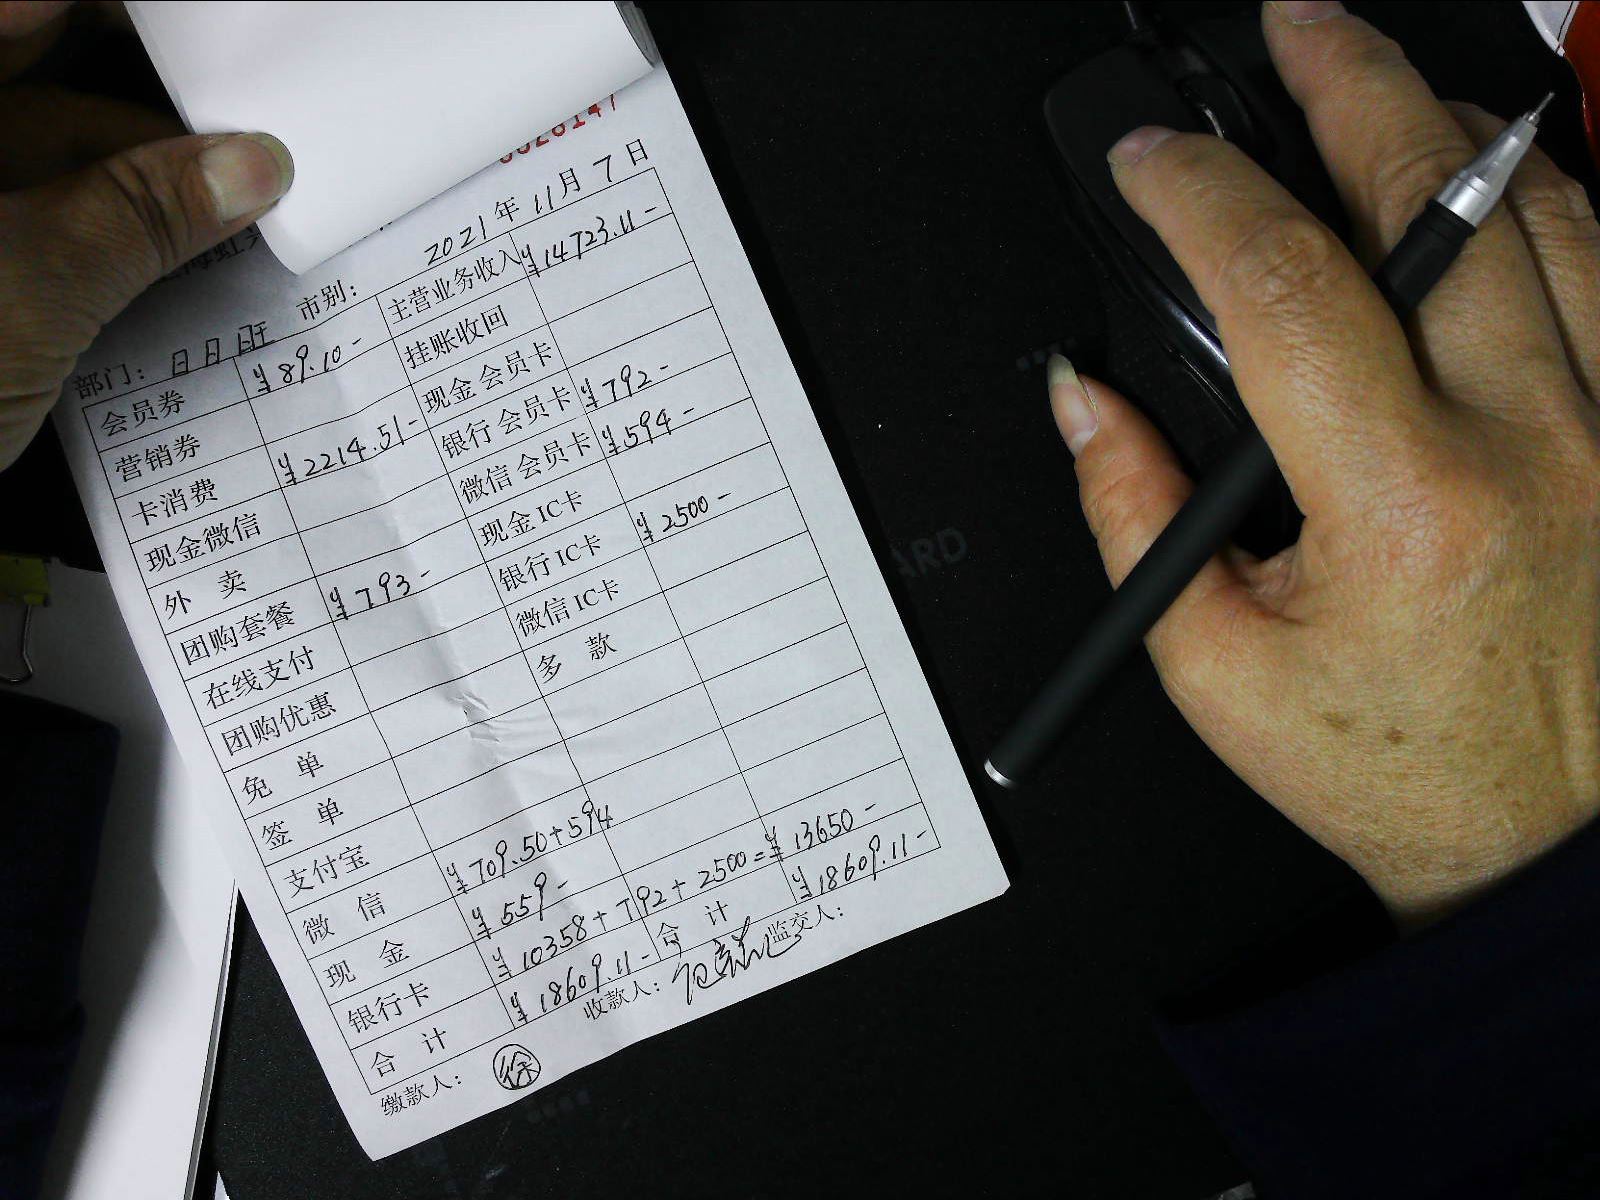 2021年11月7日
部门：日月班 市别：
会员券 ¥89.10- 主营业务收入 ¥14723.11-
营销券 挂账收回
卡消费 ¥2214.51- 现金会员卡
现金微信 银行会员卡 ¥792-
外卖 微信会员卡 ¥594-
团购套餐 ¥793- 现金IC卡
在线支付 银行IC卡 ¥2500-
团购优惠 微信IC卡
免单 多款
签单
支付宝
微信 ¥709.50+594
现金 ¥559-
银行卡 ¥10358+792+2500=¥13650-
合计 ¥18609.11- 合计 ¥18609.11-
缴款人：徐 收款人： 监交人：